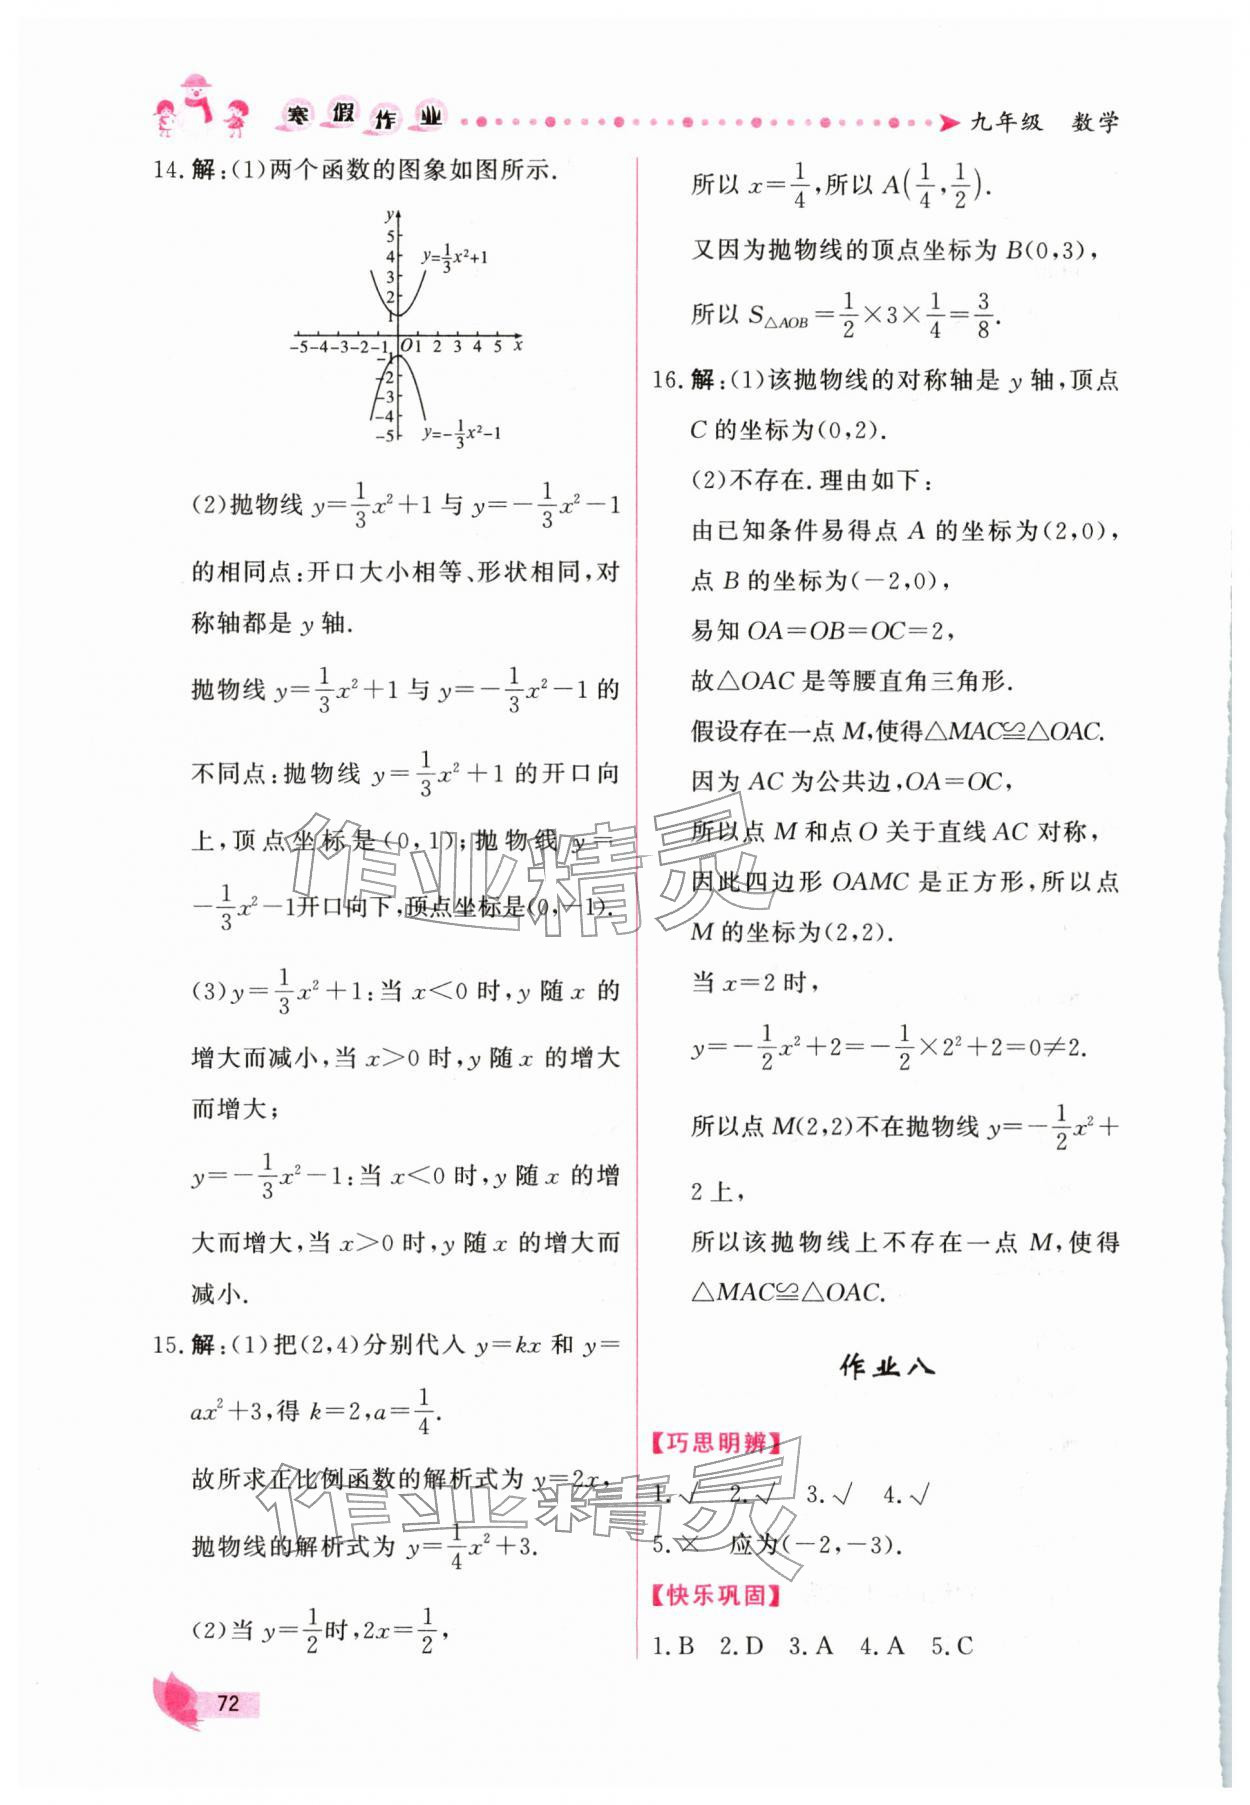 寒假作业
九年级 数学
14.解:(1)两个函数的图象如图所示.
y
5
4
3
2
1
y=1/3x²+1
-5-4-3-2-1 O 1 2 3 4 5 x
-1
-2
-3
-4
-5
y=-1/3x²-1
(2)抛物线 y=1/3x²+1 与 y=-1/3x²-1
的相同点:开口大小相等、形状相同,对
称轴都是 y 轴.
抛物线 y=1/3x²+1 与 y=-1/3x²-1 的
不同点:抛物线 y=1/3x²+1 的开口向
上,顶点坐标是(0,1);抛物线 y=
-1/3x²-1开口向下,顶点坐标是(0,-1).
(3)y=1/3x²+1:当 x<0 时,y 随 x 的
增大而减小,当 x>0 时,y 随 x 的增大
而增大;
y=-1/3x²-1:当 x<0 时,y 随 x 的增
大而增大,当 x>0 时,y 随 x 的增大而
减小.
15.解:(1)把(2,4)分别代入 y=kx 和 y=
ax²+3,得 k=2,a=1/4.
故所求正比例函数的解析式为 y=2x,
抛物线的解析式为 y=1/4x²+3.
(2)当 y=1/2时,2x=1/2,
所以 x=1/4,所以 A(1/4,1/2).
又因为抛物线的顶点坐标为 B(0,3),
所以 S△AOB=1/2×3×1/4=3/8.
16.解:(1)该抛物线的对称轴是 y 轴,顶点
C 的坐标为(0,2).
(2)不存在.理由如下:
由已知条件易得点 A 的坐标为(2,0),
点 B 的坐标为(-2,0),
易知 OA=OB=OC=2,
故△OAC 是等腰直角三角形.
假设存在一点 M,使得△MAC≌△OAC.
因为 AC 为公共边,OA=OC,
所以点 M 和点 O 关于直线 AC 对称,
因此四边形 OAMC 是正方形,所以点
M 的坐标为(2,2).
当 x=2 时,
y=-1/2x²+2=-1/2×2²+2=0≠2.
所以点 M(2,2)不在抛物线 y=-1/2x²+
2 上,
所以该抛物线上不存在一点 M,使得
△MAC≌△OAC.
作业八
【巧思明辨】
1.√ 2.√ 3.√ 4.√
5.× 应为(-2,-3).
【快乐巩固】
1.B 2.D 3.A 4.A 5.C
72
作业精灵
作业精灵